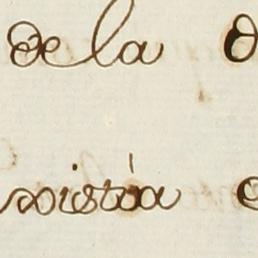 de la
xistía